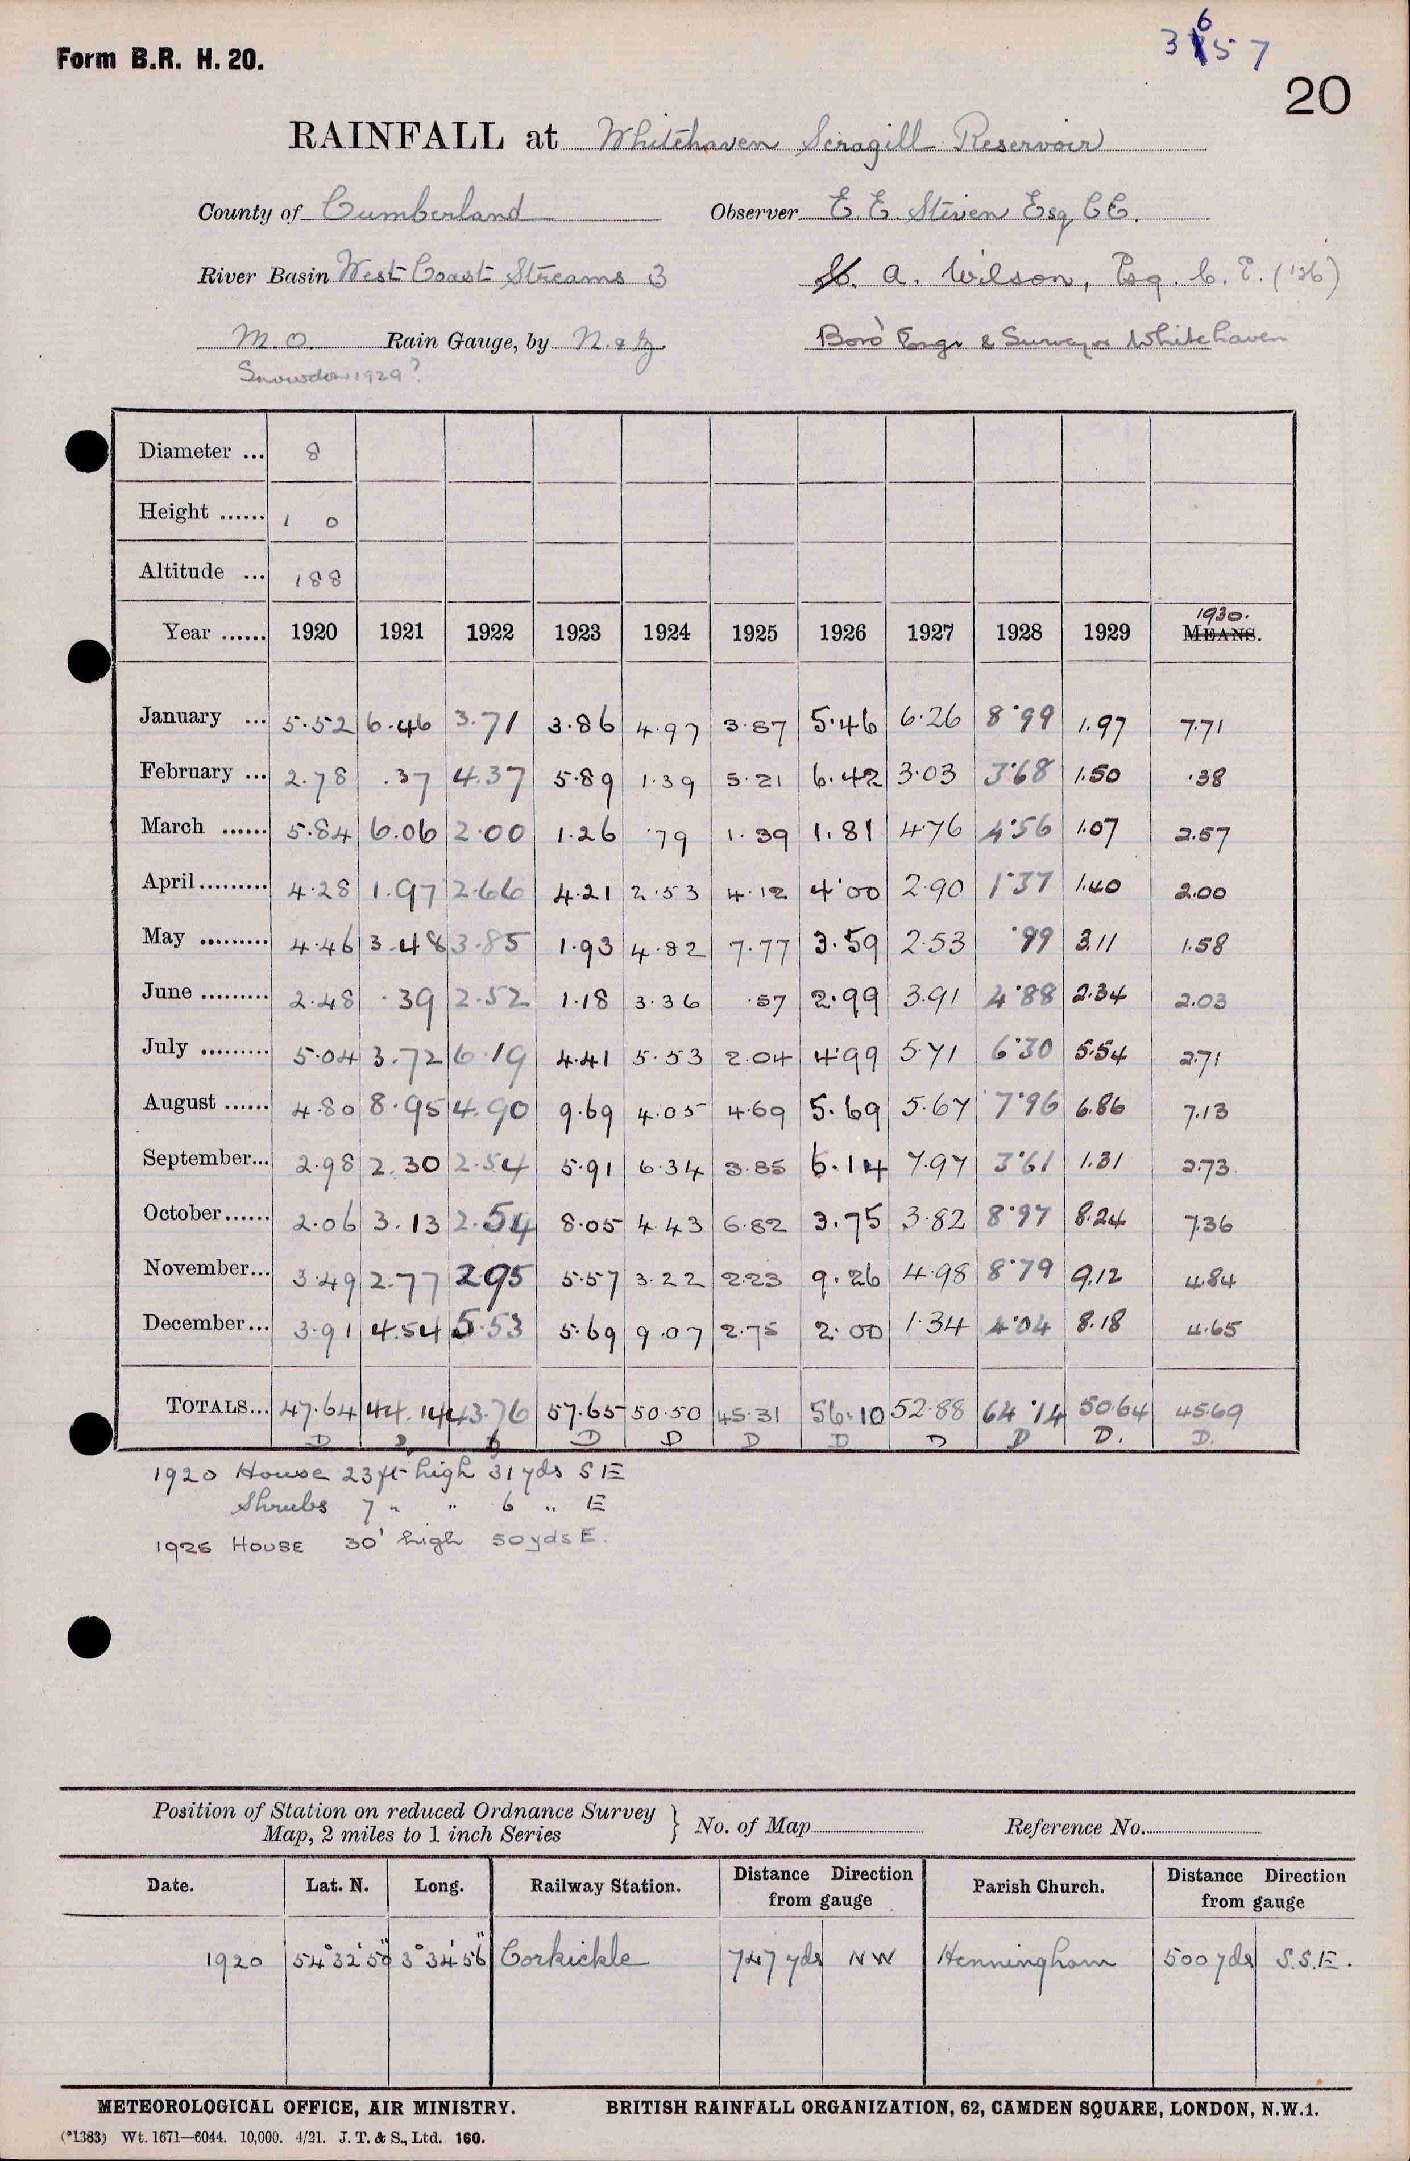 Form B.R. H. 20.
3657
20
RAINFALL at Whitehaven Scragill Reservoir
County of Cumberland Observer E. E. Stiven Esq C.E.
River Basin West Coast Streams 3 A. Wilson, Esq. C. E. ('26)
M.O. Rain Gauge, by N. & Z. Boro' Engr & Surveyor Whitehaven
Snowdon 1929?
Diameter ... 8
Height ...... 1 0
Altitude ... 188
Year ...... 1920 1921 1922 1923 1924 1925 1926 1927 1928 1929 1930. MEANS.
January ... 5.52 6.46 3.71 3.86 4.97 3.87 5.46 6.26 8.99 1.97 7.71
February ... 2.78 .37 4.37 5.89 1.39 5.21 6.42 3.03 3.68 1.50 .38
March ...... 5.84 6.06 2.00 1.26 .79 1.39 1.81 4.76 4.56 1.07 2.57
April ......... 4.28 1.97 2.66 4.21 2.53 4.12 4.00 2.90 1.37 1.40 2.00
May ......... 4.46 3.48 3.85 1.93 4.82 7.77 3.59 2.53 .99 3.11 1.58
June ......... 2.48 .39 2.52 1.18 3.36 .57 2.99 3.91 4.88 2.34 2.03
July ......... 5.04 3.72 6.19 4.41 5.53 2.04 4.99 5.71 6.30 5.54 2.71
August ...... 4.80 8.95 4.90 9.69 4.05 4.69 5.69 5.67 7.96 6.86 7.13
September... 2.98 2.30 2.54 5.91 6.34 3.85 6.14 7.97 3.61 1.31 2.73
October...... 2.06 3.13 2.54 8.05 4.43 6.82 3.75 3.82 8.97 8.24 7.36
November... 3.49 2.77 2.95 5.57 3.22 2.23 9.26 4.98 8.79 9.12 4.84
December... 3.91 4.54 5.53 5.69 9.07 2.75 2.00 1.34 4.04 8.18 4.65
TOTALS... 47.64 44.14 43.76 57.65 50.50 45.31 56.10 52.88 64.14 50.64 45.69
D D D D D D D D D. D.
1920 House 23 ft high 31 yds S E
Shrubs 7 " " 6 " E
1925 HOUSE 30' high 50 yds E.
Position of Station on reduced Ordnance Survey Map, 2 miles to 1 inch Series } No. of Map Reference No.
Date. Lat. N. Long. Railway Station. Distance Direction from gauge Parish Church. Distance Direction from gauge
1920 54°32'50" 3°34'56" Corkickle 747 yds NW Henningham 500 yds S.S.E.
METEOROLOGICAL OFFICE, AIR MINISTRY. BRITISH RAINFALL ORGANIZATION, 62, CAMDEN SQUARE, LONDON, N.W.1.
(*1383) Wt. 1671—6044. 10,000. 4/21. J. T. & S., Ltd. 160.